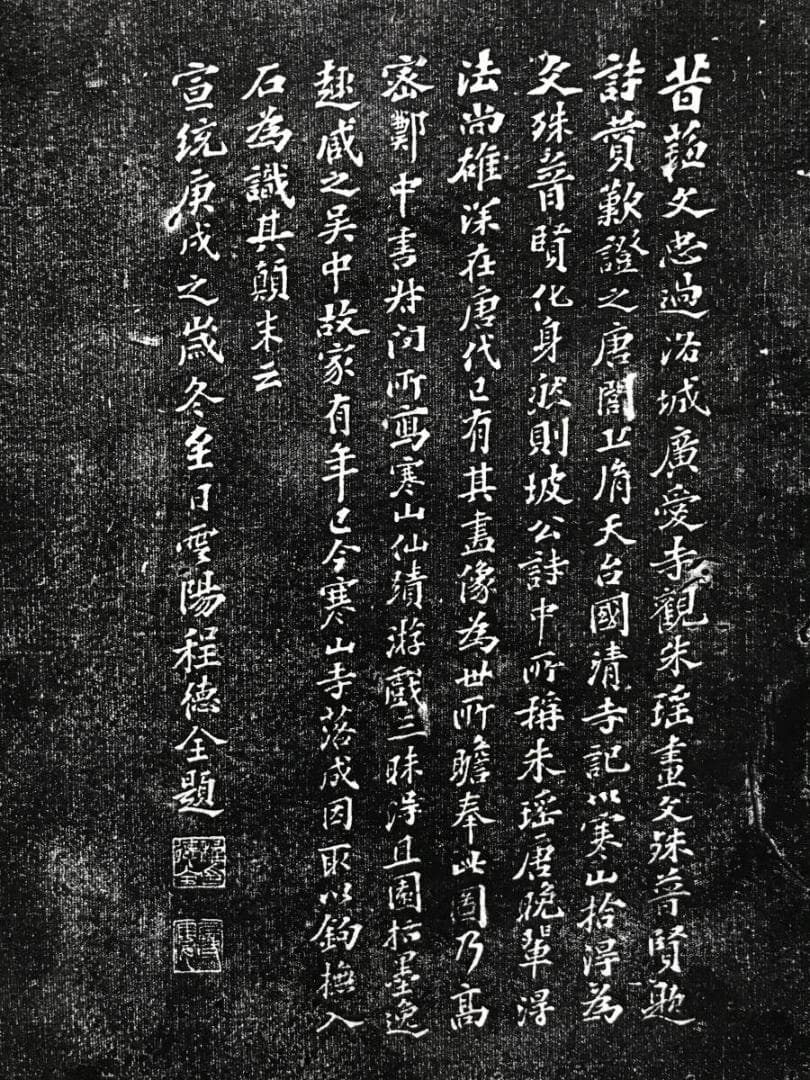 昔蘓文忠過洛城廣愛寺觀朱瑶畫文殊普賢題
詩贊歎證之唐閭丘胤天台國清寺記以寒山拾得為
文殊普賢化身然則坡公詩中所稱朱瑶唐晚輩得
法尚雄深在唐代已有其畫像為世所瞻奉此圖乃高
密鄭中書尗问所寫寒山仙蹟游戲三昧得且園指墨逸
趣臧之吳中故家有年已今寒山寺落成因取以鉤橅入
石為識其顛末云
宣統庚戌之歲冬至日雲陽程德全題